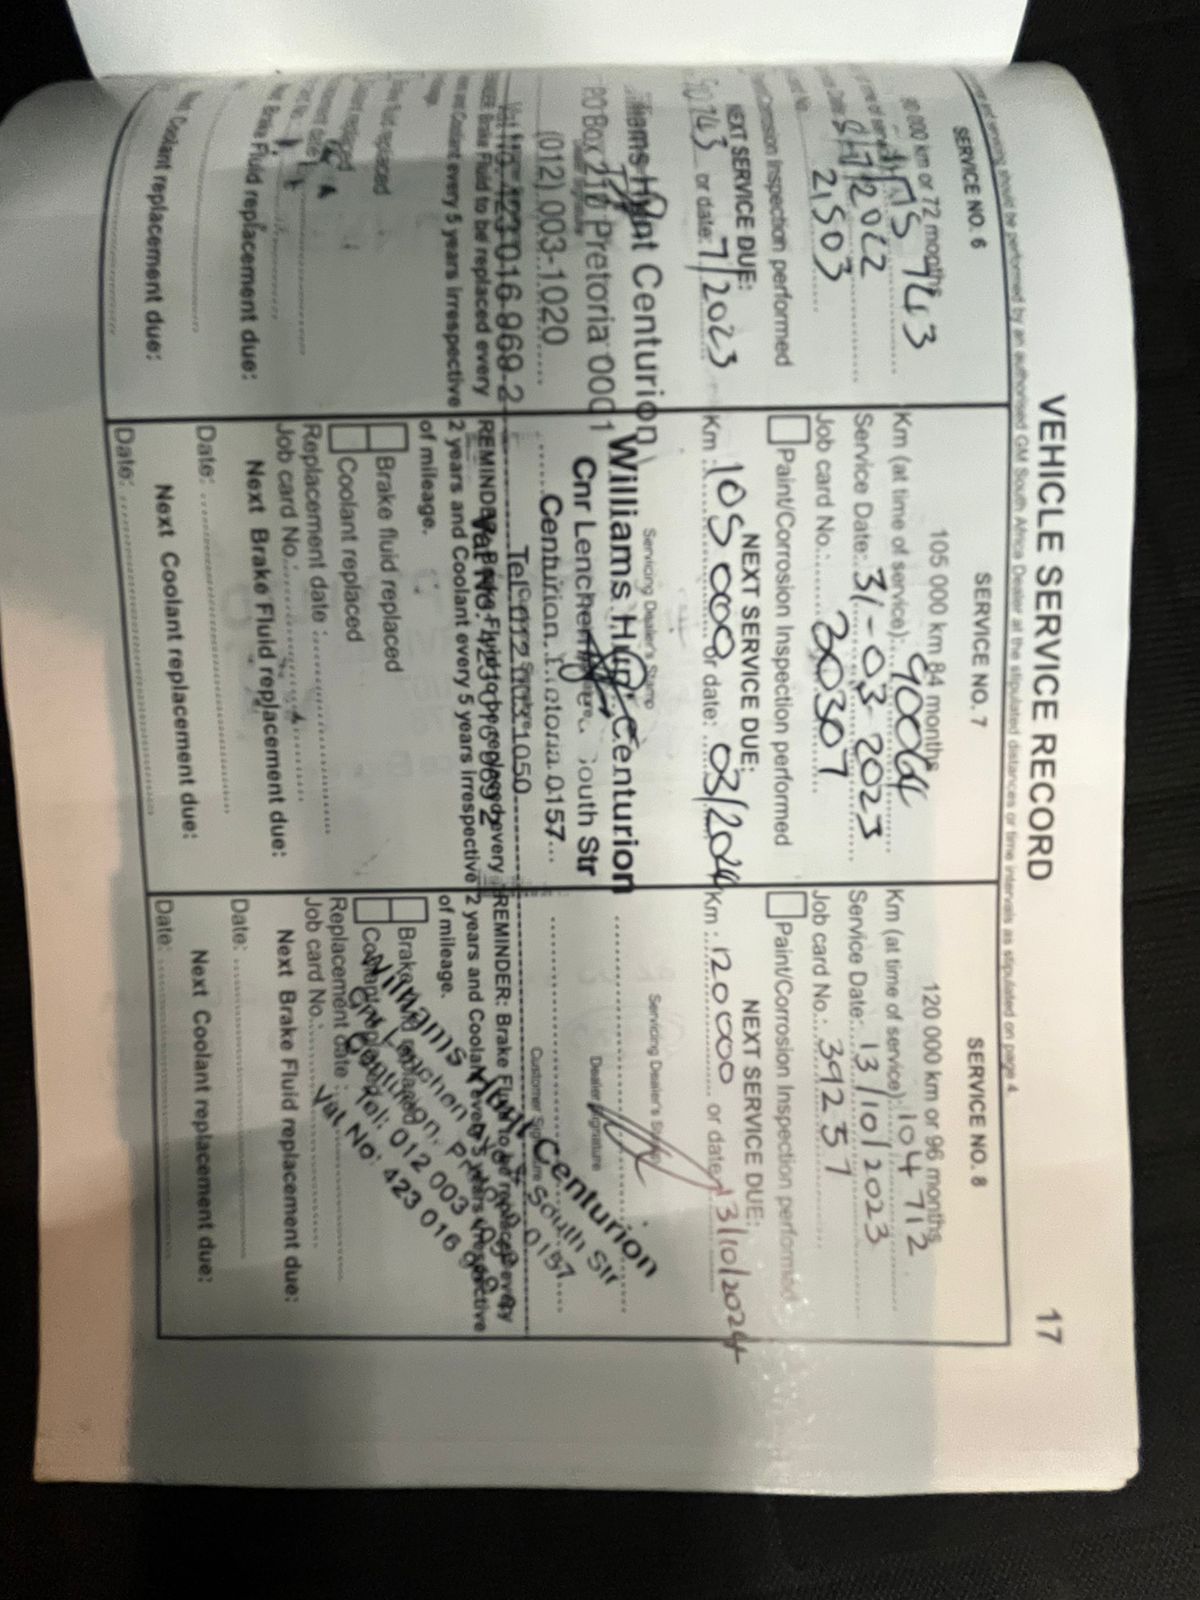 VEHICLE SERVICE RECORD
17
servicing should be performed by an authorised GM South Africa Dealer at the stipulated distances or time intervals as stipulated on page 4.
SERVICE NO. 6
90 000 km or 72 months
75 743
2022
21503
Paint/Corrosion Inspection performed
NEXT SERVICE DUE:
90743 or date: 7/2023
Williams Hunt Centurion
PO Box 210 Pretoria 0001
(012) 003-1020
Vat No: 423 016 969 2
REMINDER: Brake Fluid to be replaced every
2 years and Coolant every 5 years irrespective
Brake fluid replaced
Coolant replaced
Replacement date
Next Brake Fluid replacement due:
Next Coolant replacement due:
SERVICE NO. 7
105 000 km 84 months
Km (at time of service): 90064
Service Date: 31-03-2023
Job card No.: 30307
Paint/Corrosion Inspection performed
NEXT SERVICE DUE:
Km : 105 000 or date: 03/2024
Servicing Dealer's Stamp
Williams Hunt Centurion
Cnr Lenchen South Str
Centurion 0157
Tel: 012 003 1050
Vat No: 423 016 969 2
REMINDER: Brake Fluid to be replaced every
2 years and Coolant every 5 years irrespective
of mileage.
Brake fluid replaced
Coolant replaced
Replacement date :
Job card No.:
Next Brake Fluid replacement due:
Date:
Next Coolant replacement due:
Date:
SERVICE NO. 8
120 000 km or 96 months
Km (at time of service): 104 712
Service Date: 13/10/2023
Job card No.: 39257
Paint/Corrosion Inspection performed
NEXT SERVICE DUE:
Km : 120000 or date: 13/10/2024
Servicing Dealer's Stamp
Dealer Signature
Customer Signature
Williams Hunt Centurion
Cnr Lenchen South Str
Centurion, 0157
Tel: 012 003
Vat No: 423 016
REMINDER: Brake Fluid to be replaced every
2 years and Coolant every 5 years irrespective
of mileage.
Brake fluid replaced
Coolant replaced
Replacement date :
Job card No.:
Next Brake Fluid replacement due:
Date:
Next Coolant replacement due:
Date: